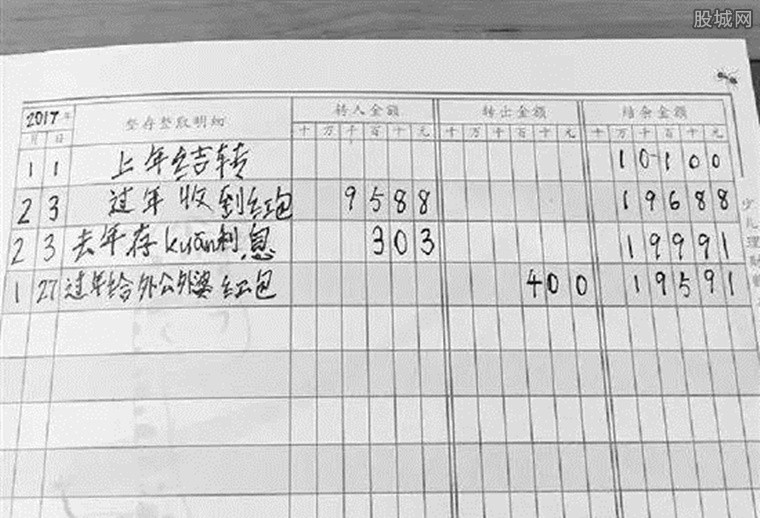 股城网
2017年 整存整取明细 转入金额 转出金额 结余金额
月 日 十 万 千 百 十 元 十 万 千 百 十 元 十 万 千 百 十 元
1 1 上年结转 10100
2 3 过年收到红包 9588 19688
2 3 去年存kuan利息 303 19991
1 27 过年给外公外婆红包 400 19591
少儿理财